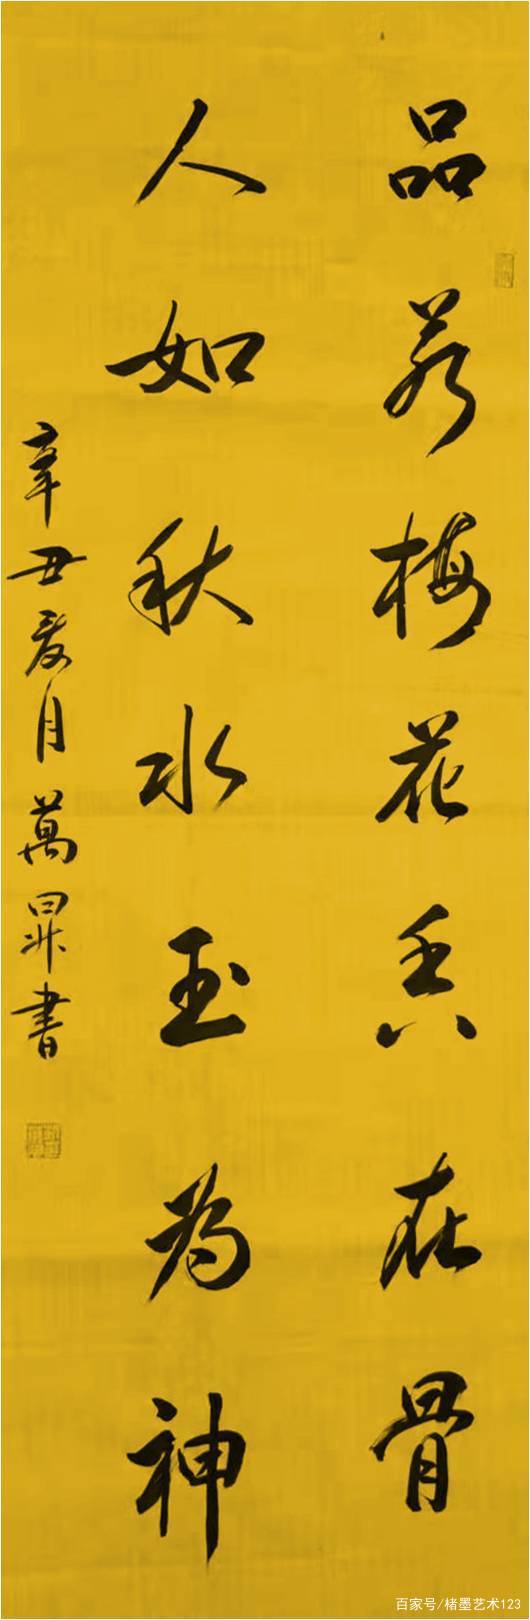 品若梅花香在骨
人如秋水玉为神
辛丑夏月萬昇書
百家号/楮墨艺术123